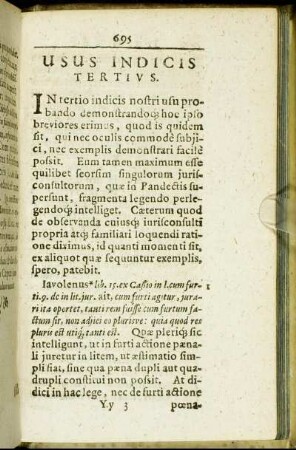 695
USUS INDICIS
TERTIVS.
IN tertio indicis nostri usu pro
bando demonstrandoq́; hoc ipso
breviores erimus, quod is quidem
sit, qui nec oculis commodè subji-
ci, nec exemplis demonstrari facilè
possit. Eum tamen maximum esse
quilibet seorsim singulorum juris-
consultorum, quæ in Pandectis su-
persunt, fragmenta legendo perle-
gendoq́; intelliget. Cæterum quod
de observanda cuiusq́; iurisconsulti
propria atq́; familiari loquendi rati-
one diximus, id quanti momenti sit,
ex aliquot quæ sequuntur exemplis,
spero, patebit.
Iavolenus* lib. 15. ex Cassio in l. cum fur- 1
ti. 9. de in lit. jur. ait, cum furti agitur, jura-
ri ita oportet, tanti rem fuisse cum furtum fa-
ctum sit, non adjici eo plurisve: quia quod res
pluris est utiq́; tanti est. Quæ pleriq́; sic
intelligunt, ut in furti actione pæna-
li juretur in litem, ut æstimatio sim-
pli fiat, sine qua pæna dupli aut qua-
drupli constitui non possit. At di-
dici in hac lege, nec de furti actione
Y y 3 pœna-